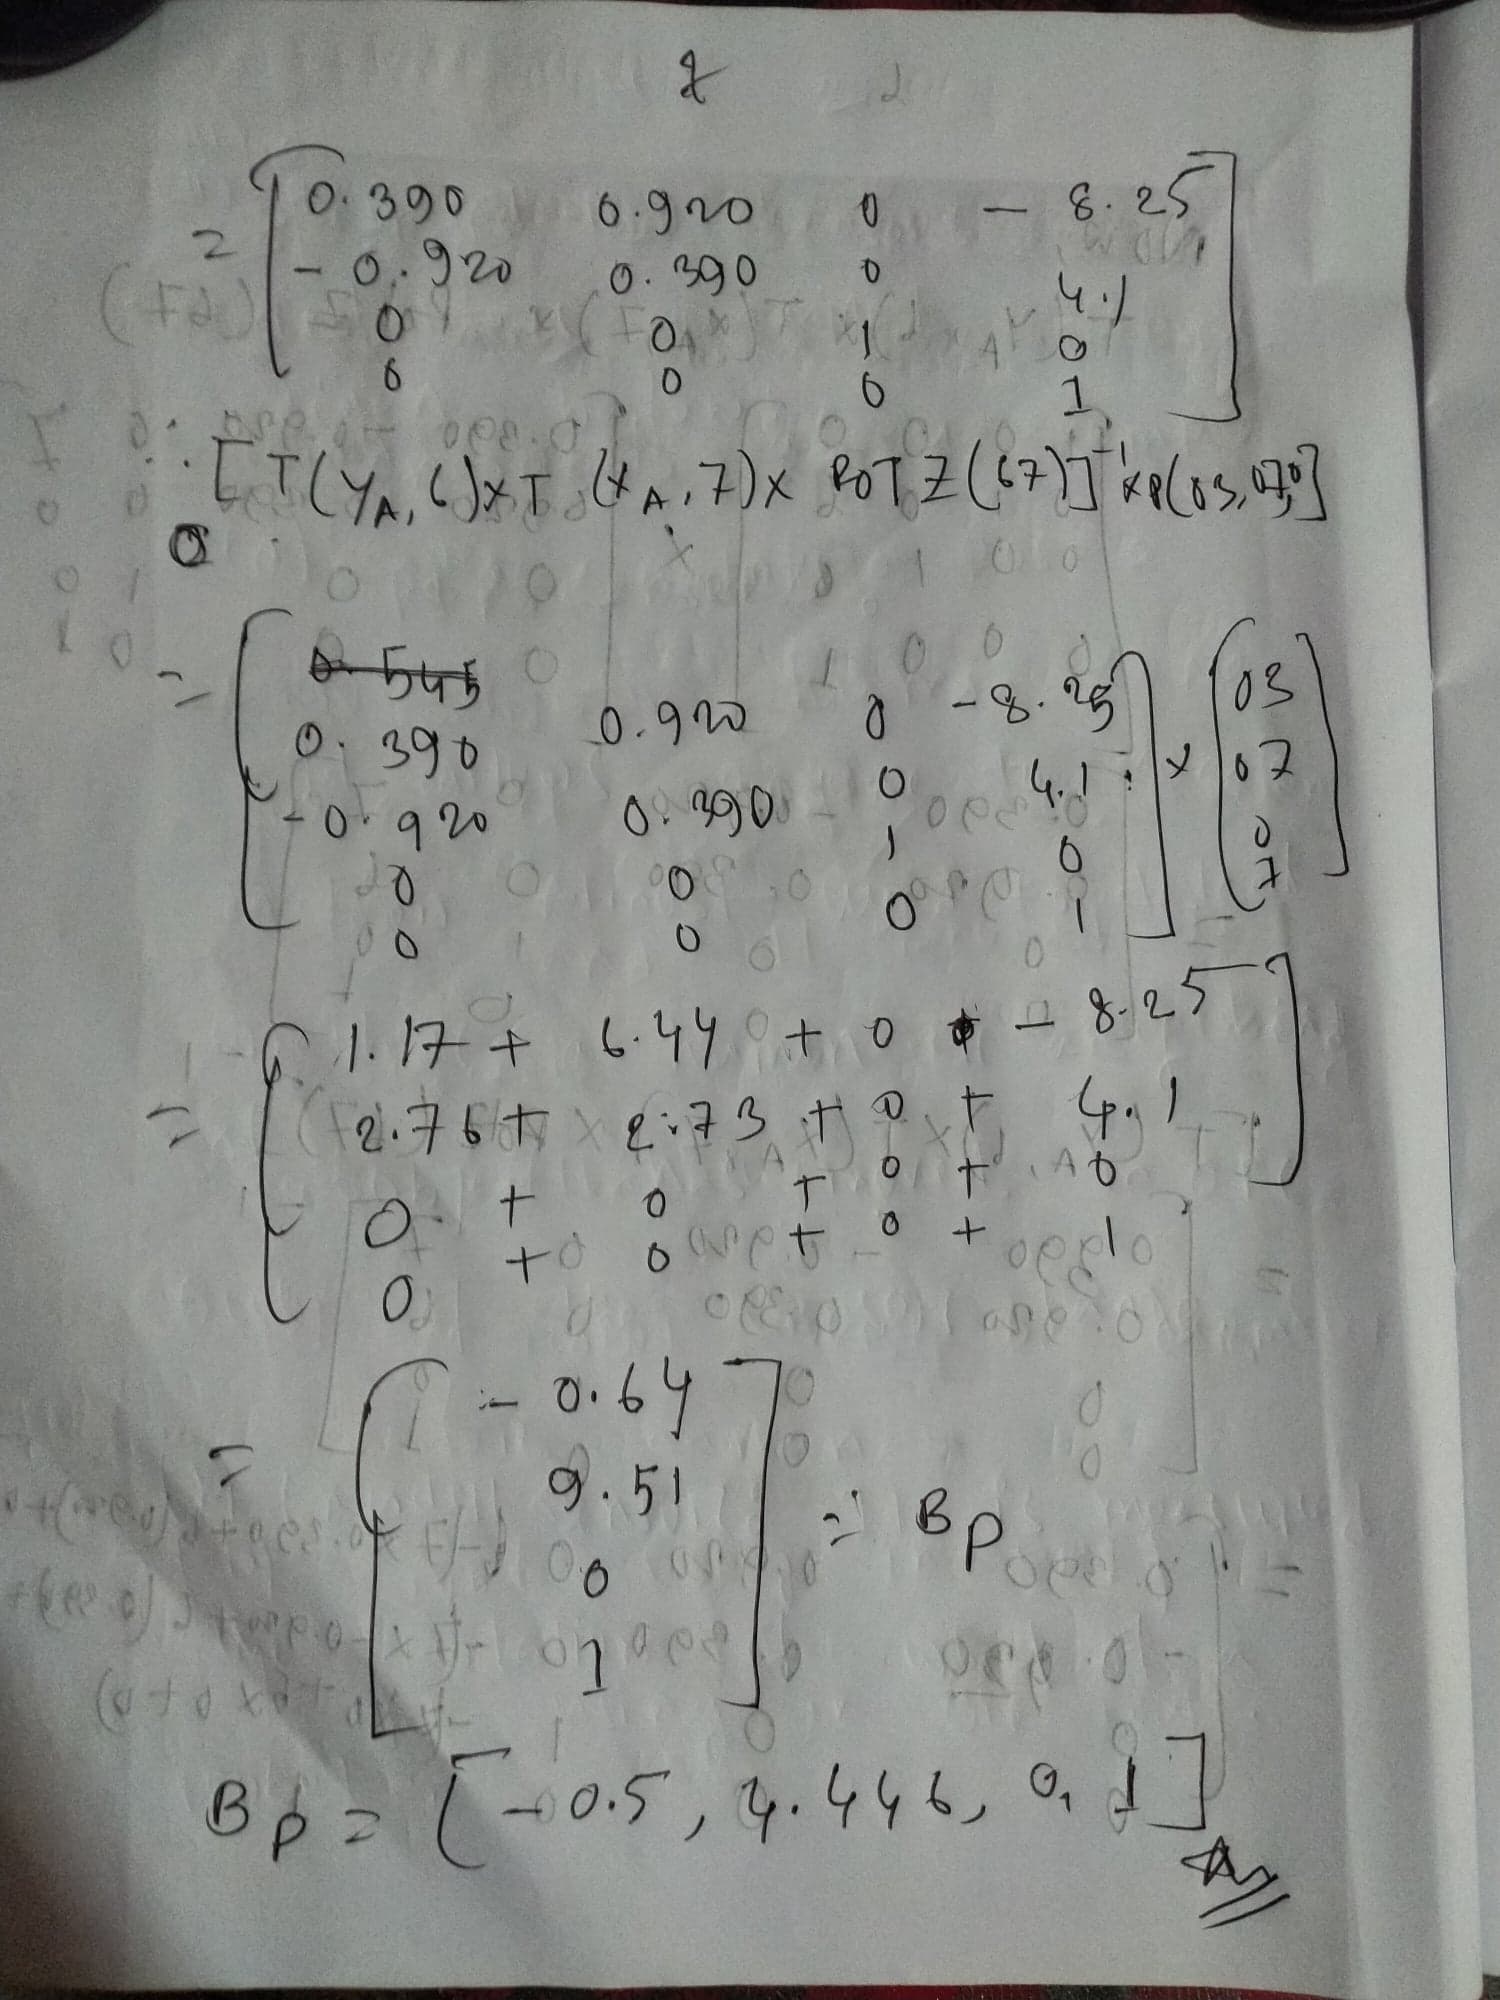 2
= [ 0.390 0.920 0 - 8.25 ]
- 0.920 0.390 0 4.1
0 0 1 0
0 0 0 1
∴ [T(Y_A, 6) x T (X_A, 7) x ROT Z (67)]^-1 x P(03, 07, 0]
= [ 0.545
0.390 0.920 0 -8.25 ] x [ 03
-0.920 0.390 0 4.1 07
0 0 1 0 0
0 0 0 1 1 ]
= [ 1.17 + 6.44 + 0 - 8.25 ]
2.76 + 2.73 + 0 + 4.1
0 + 0 + 0 + 0
0 + 0 + 0 + 1
= [ - 0.64
9.51
0
1 ] = B_P
B_P = [-0.5, 4.446, 0, 1]